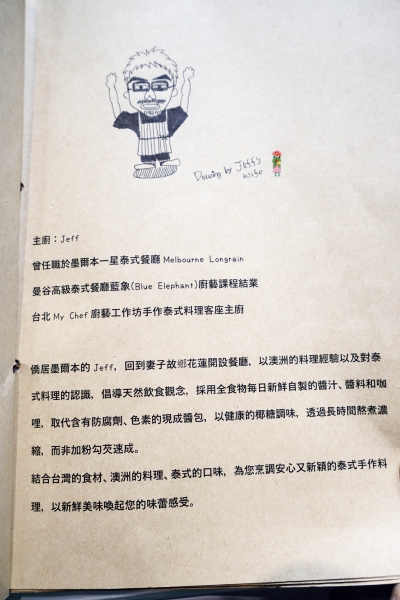 Drawing by Jeff's
wife
主廚：Jeff
曾任職於墨爾本一星泰式餐廳 Melbourne Longrain
曼谷高級泰式餐廳藍象(Blue Elephant)廚藝課程結業
台北 My Chef 廚藝工作坊手作泰式料理客座主廚
僑居墨爾本的 Jeff，回到妻子故鄉花蓮開設餐廳，以澳洲的料理經驗以及對泰
式料理的認識，倡導天然飲食觀念，採用全食物每日新鮮自製的醬汁、醬料和咖
哩，取代含有防腐劑、色素的現成醬包，以健康的椰糖調味，透過長時間熬煮濃
縮，而非加粉勾芡速成。
結合台灣的食材、澳洲的料理、泰式的口味，為您烹調安心又新穎的泰式手作料
理，以新鮮美味喚起您的味蕾感受。